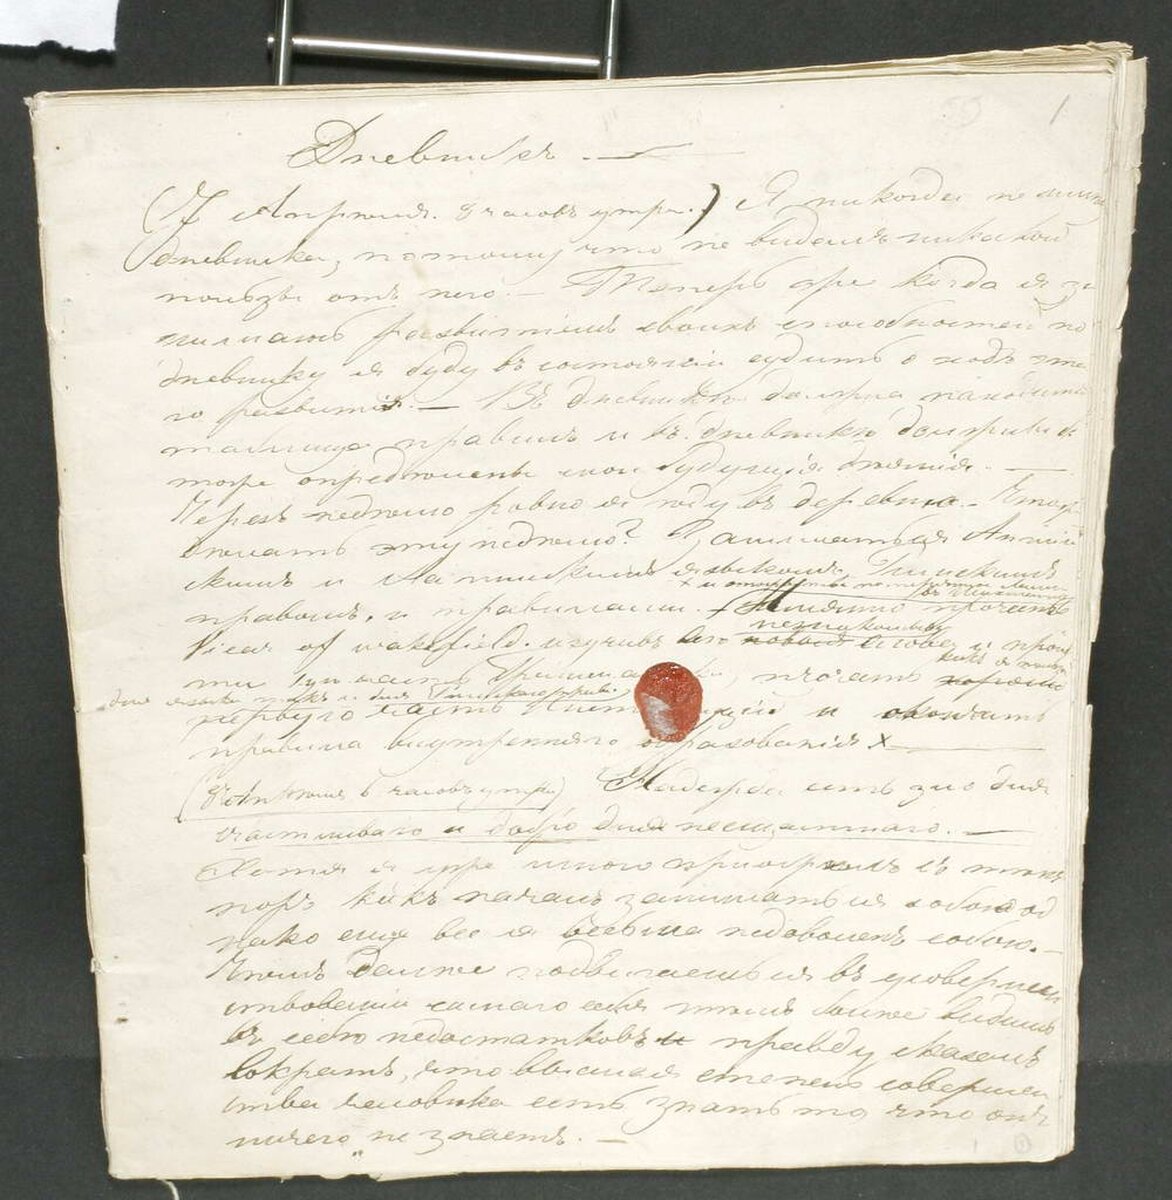 1
Дневникъ. —
(7 Апрѣля. 8 часовъ утра.) Я никогда не имѣлъ
дневника, потому что не видѣлъ никакой
пользы отъ него. — Теперь же когда я за
нимаюсь развитіемъ своихъ способностей по
дневнику я буду въ состояніи судить о ходѣ это
го развитія. — Въ дневникѣ должна находиться
таблица правилъ и въ дневникѣ должны
тоже опредѣлены мои будущія дѣянія. —
Черезъ недѣлю ровно я ѣду въ деревню. — Что же
дѣлать эту недѣлю? Заниматься Англій
скимъ и Латинскимъ языкомъ, Римскимъ
правомъ, и правилами. — Именно прочесть
Vicar of wakefield. изучивъ всѣ незнакомыя слова и прой
ти 1ую часть Грамматики, прочесть какъ съ пользой
для языка такъ и для Римскаго права
первую часть Институцій и окончить
правила внутренняго образованія х —
(8 Апрѣля 6 часовъ утра) Надежда есть зло для
счастливаго и добро для несчастнаго. —
Хотя я уже много пріобрѣлъ съ тѣхъ
поръ какъ началъ заниматься собою од
нако еще все я весьма недоволенъ собою. —
Чѣмъ далѣе подвигаешься въ усовершен
ствованіи самаго себя тѣмъ болѣе видишь
въ себѣ недостатковъ и правду сказалъ
Сократъ, что высшая степень совершен
ства человѣка есть знать то, что онъ
ничего не знаетъ. —